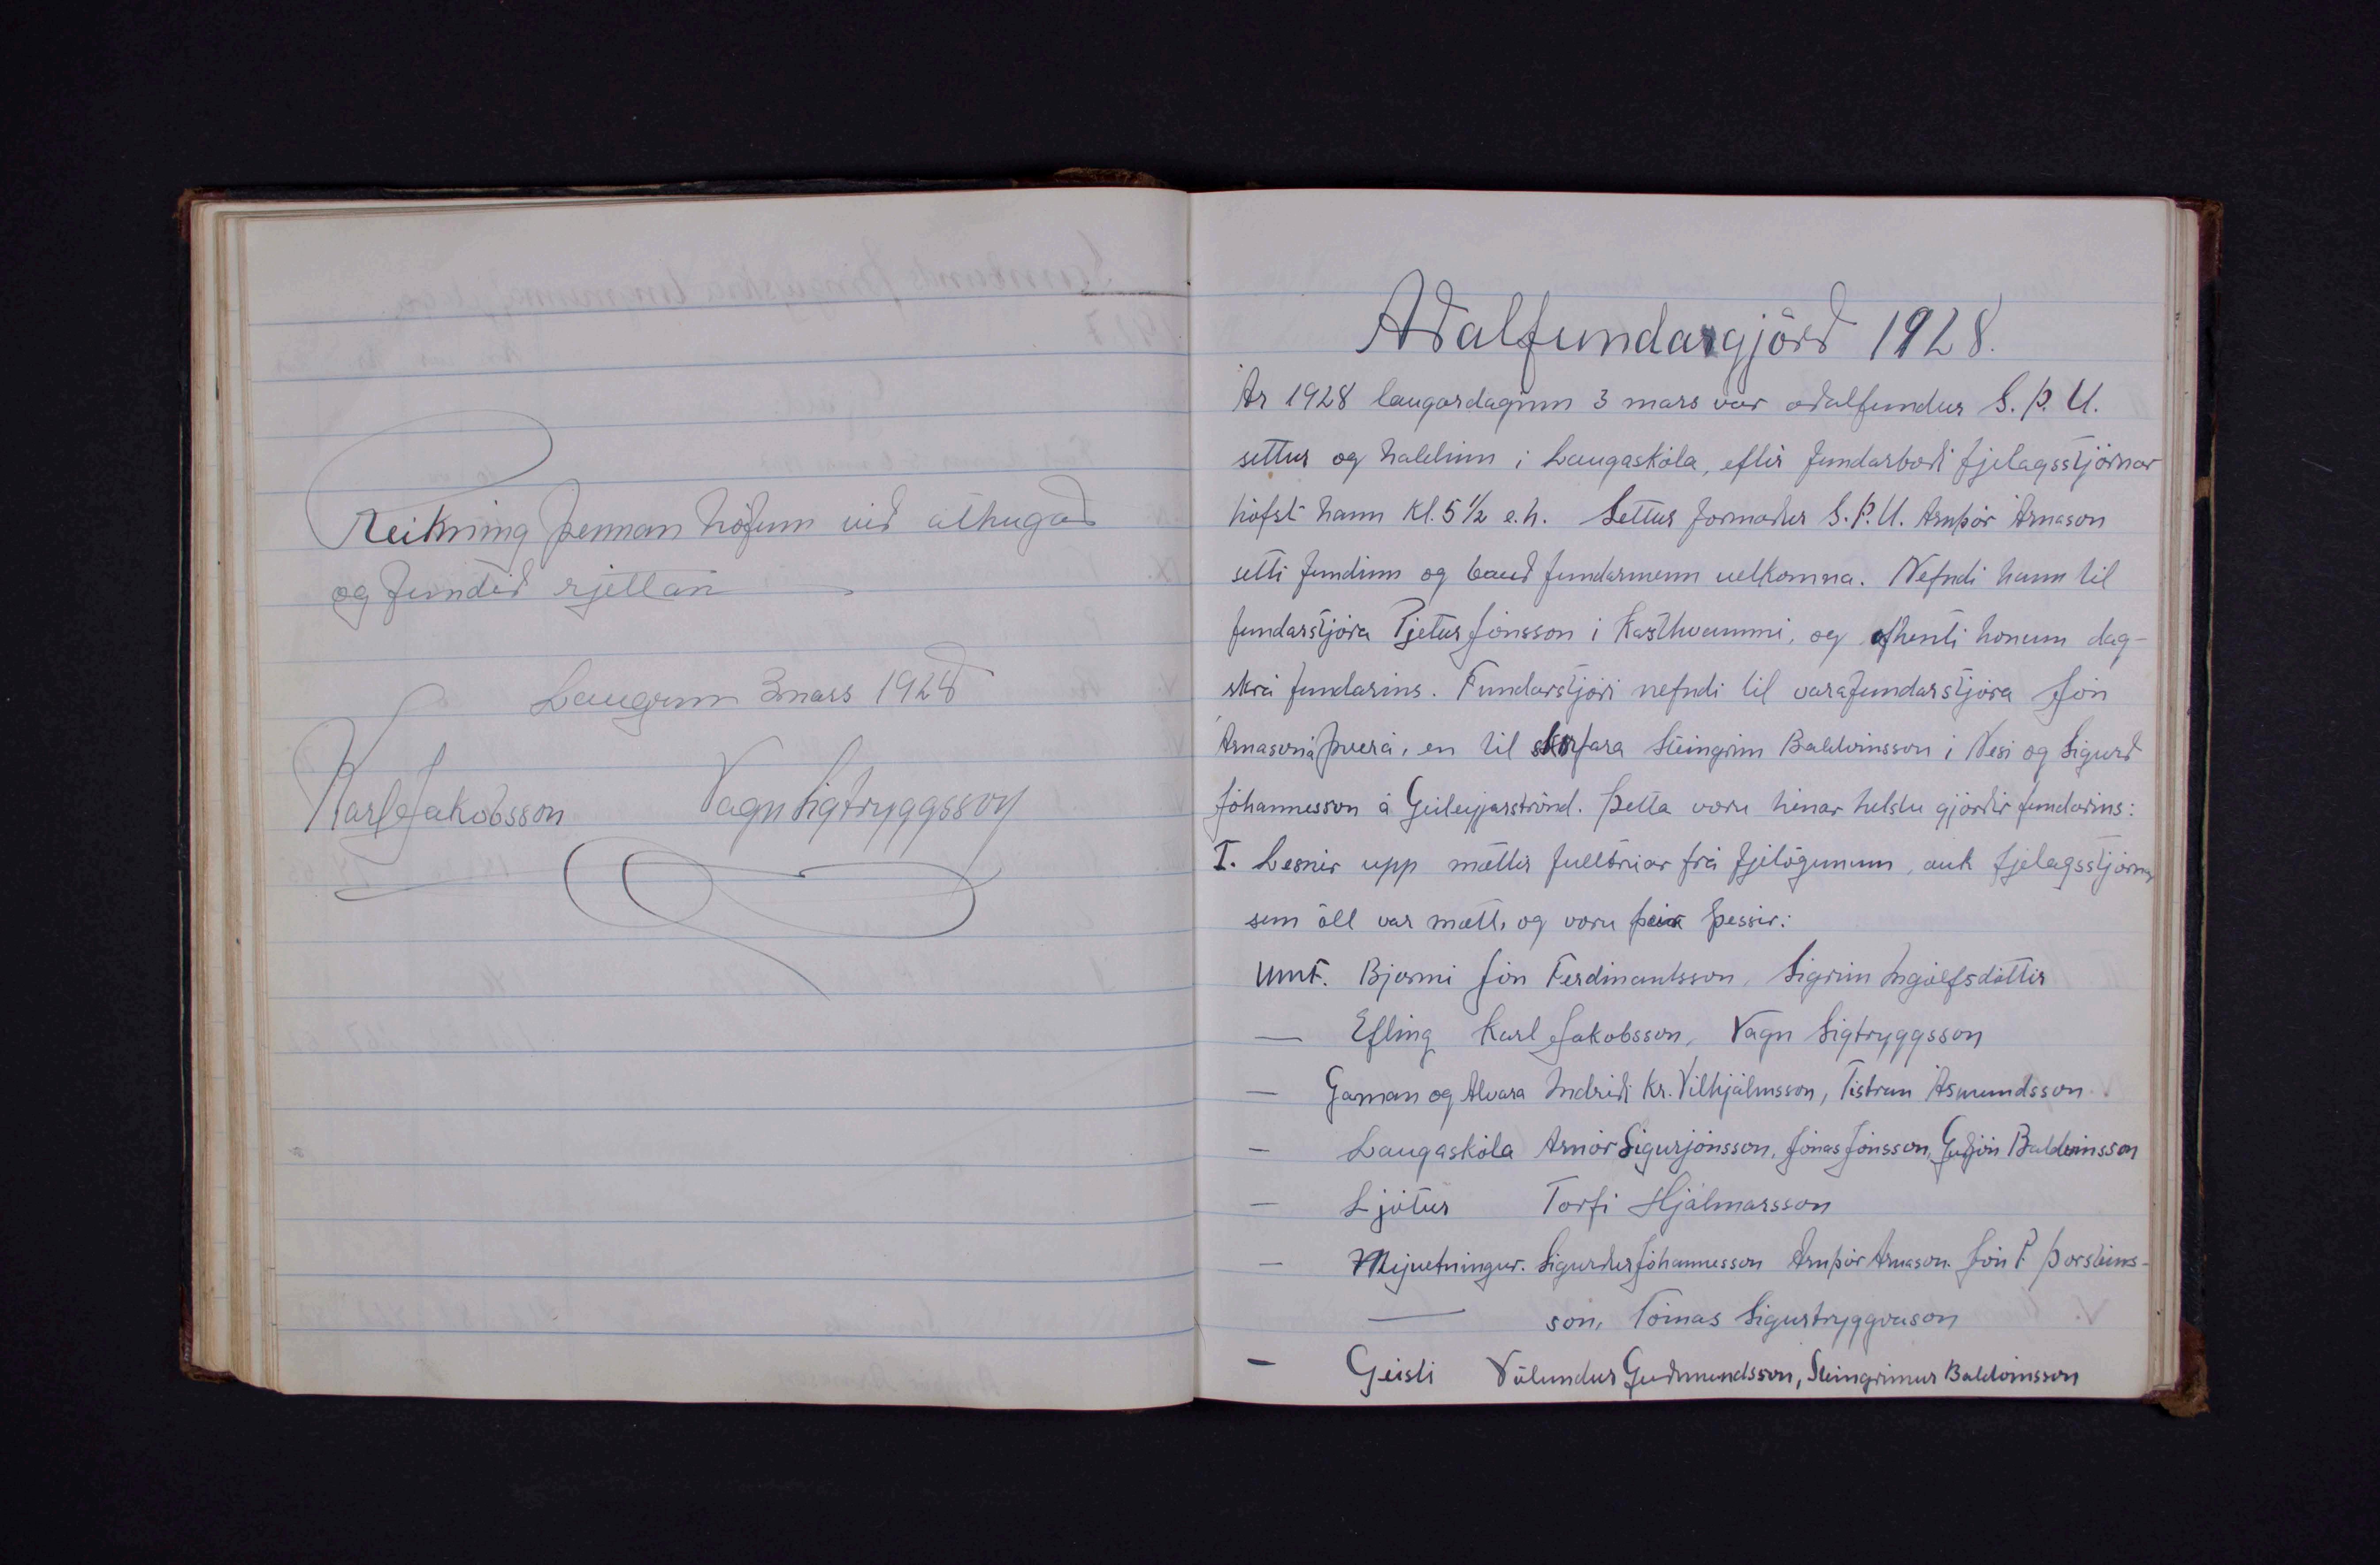 Reikning þennan höfum við athugað
og fundið rjettan
Laugum 3 mars 1928
Karl Jakobsson Vagn Sigtryggsson
Aðalfundargjörð 1928.
Ár 1928 laugardaginn 3 mars var aðalfundur S. Þ. U.
settur og haldinn í Laugaskóla, eftir fundarboði fjelagsstjórnar
hófst hann kl. 5 1/2 e.h. Settur formaður S.Þ.U. Arnþór Árnason
setti fundinn og bauð fundarmenn velkomna. Nefndi hann til
fundarstjóra Pjetur Jónsson í Kasthvammi, og afhenti honum dag-
skrá fundarins. Fundarstjóri nefndi til varafundarstjóra Jón
Árnason á Þverá, en til skrifara Steingrím Baldvinsson í Nesi og Sigurð
Jóhannesson á Geileyjarströnd. Þetta voru hinar helstu gjörðir fundarins:
I. Lesnir upp mættir fulltrúar frá fjelögunum, auk fjelagsstjórnar
sem öll var mætt, og voru þeir þessir:
Umf. Bjarmi Jón Ferdinantsson, Sigrún Ingólfsdóttir
— Efling Karl Jakobsson, Vagn Sigtryggsson
— Gaman og Alvara Indriði Kr. Vilhjálmsson, Tistran Ásmundsson
— Laugaskóla Arnór Sigurjónsson, Jónas Jónsson, Guðjón Baldvinsson
— Ljótur Torfi Hjálmarsson
— Mývetningur. Sigurður Jóhannesson Arnþór Árnason. Jón P. Þorsteins-
— son, Tómas Sigurtryggvason
— Geisli Völundur Guðmundsson, Steingrímur Baldvinsson